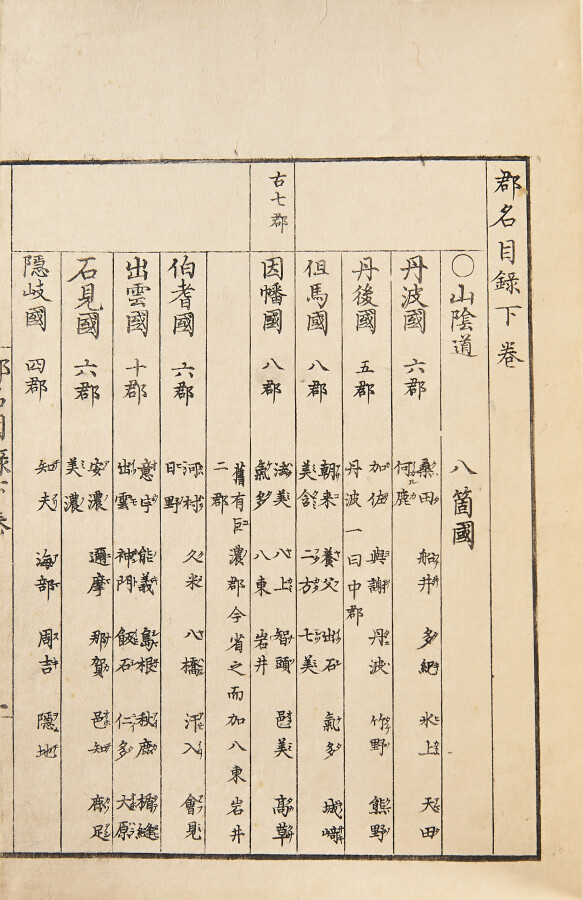 郡名目録下巻
〇山陰道 八箇國
丹波國 六郡 桑田 船井 多紀 氷上 天田
何鹿
丹後國 五郡 加佐 與謝 丹波 竹野 熊野
丹波一曰中郡
但馬國 八郡 朝来 養父 出石 氣多 城崎
美含 二方 七美
古七郡
因幡國 八郡 法美 八上 智頭 邑美 高草
氣多 八東 岩井
舊有巨濃郡今省之而加八東岩井
二郡
伯耆國 六郡 河村 久米 八橋 汗入 會見
日野
出雲國 十郡 意宇 能義 島根 秋鹿 楯縫
出雲 神門 飯石 仁多 大原
石見國 六郡 安濃 邇摩 那賀 邑知 鹿足
美濃
隠岐國 四郡 知夫 海部 周吉 隠地